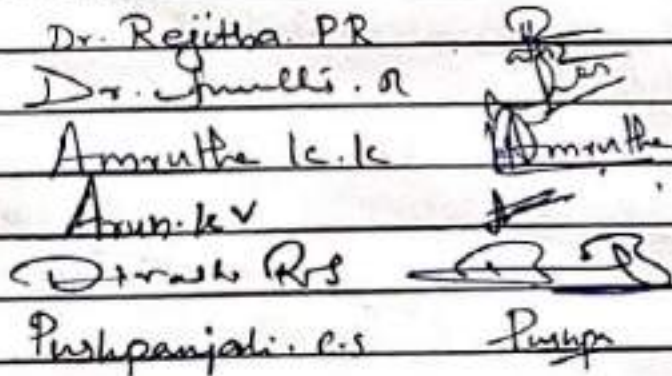 Dr. Rejitha. P R
Dr. R
Amrutha k. k Amrutha
Arun. k V
R S
Pushpanjali. C.S Pushpa